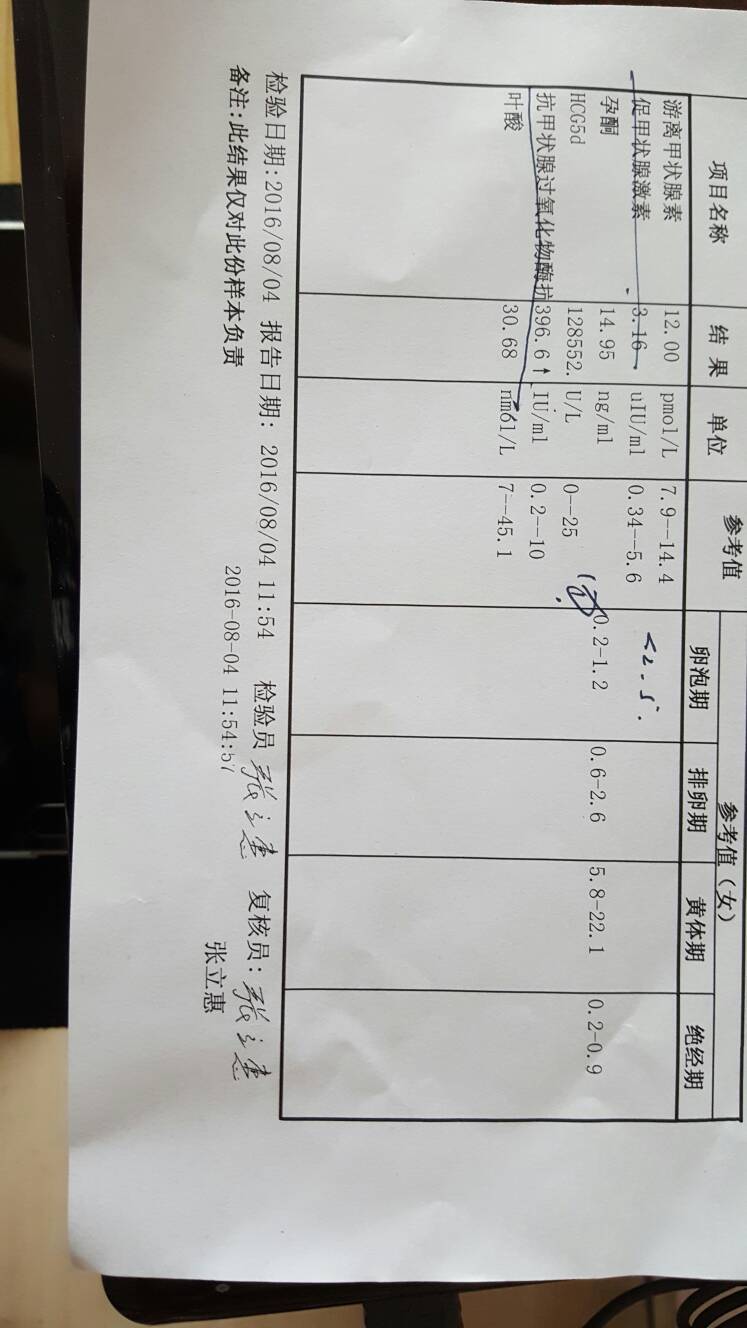 项目名称 结 果 单位 参考值 参考值(女)
卵泡期 排卵期 黄体期 绝经期
游离甲状腺素 12.00 pmol/L 7.9--14.4
促甲状腺激素 3.16 uIU/ml 0.34--5.6 <2.5.
孕酮 14.95 ng/ml 0.2-1.2 0.6-2.6 5.8-22.1 0.2-0.9
HCG5d 128552. U/L 0--25
抗甲状腺过氧化物酶抗 396.6↑ IU/ml 0.2--10
叶酸 30.68 nmol/L 7--45.1
检验日期:2016/08/04 报告日期: 2016/08/04 11:54 检验员 张立惠 复核员: 张立惠
备注:此结果仅对此份样本负责 2016-08-04 11:54:57 张立惠